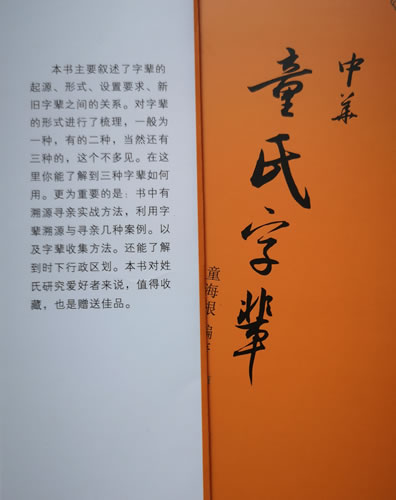 本书主要叙述了字辈的
起源、形式、设置要求、新
旧字辈之间的关系。对字辈
的形式进行了梳理，一般为
一种，有的二种，当然还有
三种的，这个不多见。在这
里你能了解到三种字辈如何
用。更为重要的是：书中有
溯源寻亲实战方法，利用字
辈溯源与寻亲几种案例。以
及字辈收集方法。还能了解
到时下行政区划。本书对姓
氏研究爱好者来说，值得收
藏，也是赠送佳品。
中华
童氏字辈
童海根